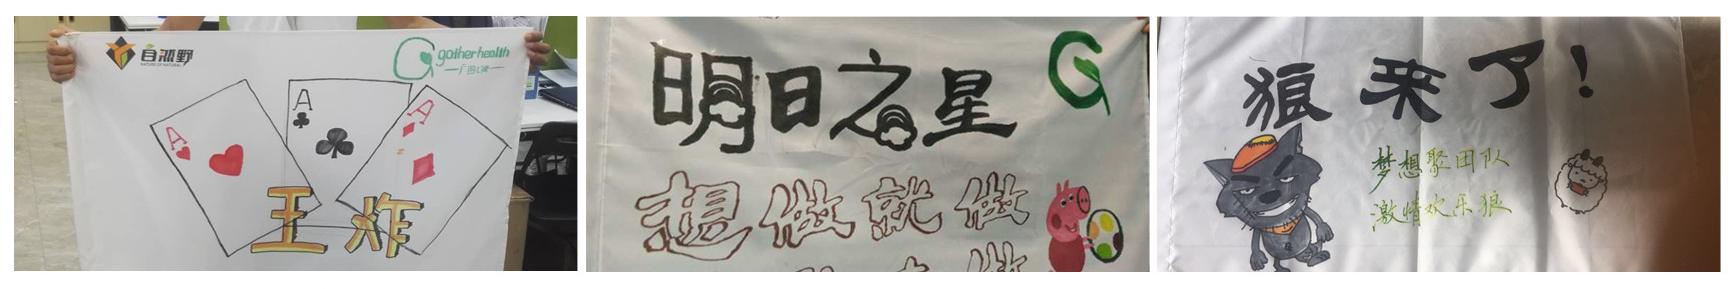 自然野
NATURE OF NATURAL
gotherhealth
A
A
A
王炸
明日之星
想做就做
狼来了!
梦想聚团队
激情欢乐狼